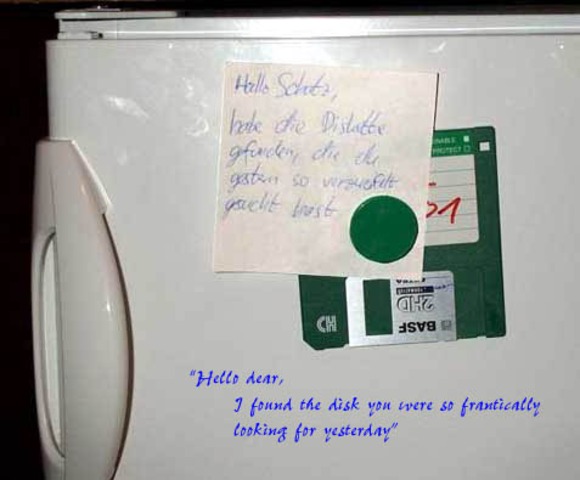 Hallo Schatz,
habe die Diskette
gefunden, die du
gestern so verzweifelt
gesucht hast
ENABLE
PROTECT
01
HD
2HD
BASF
EXTRA
"Hello dear,
I found the disk you were so frantically
looking for yesterday"